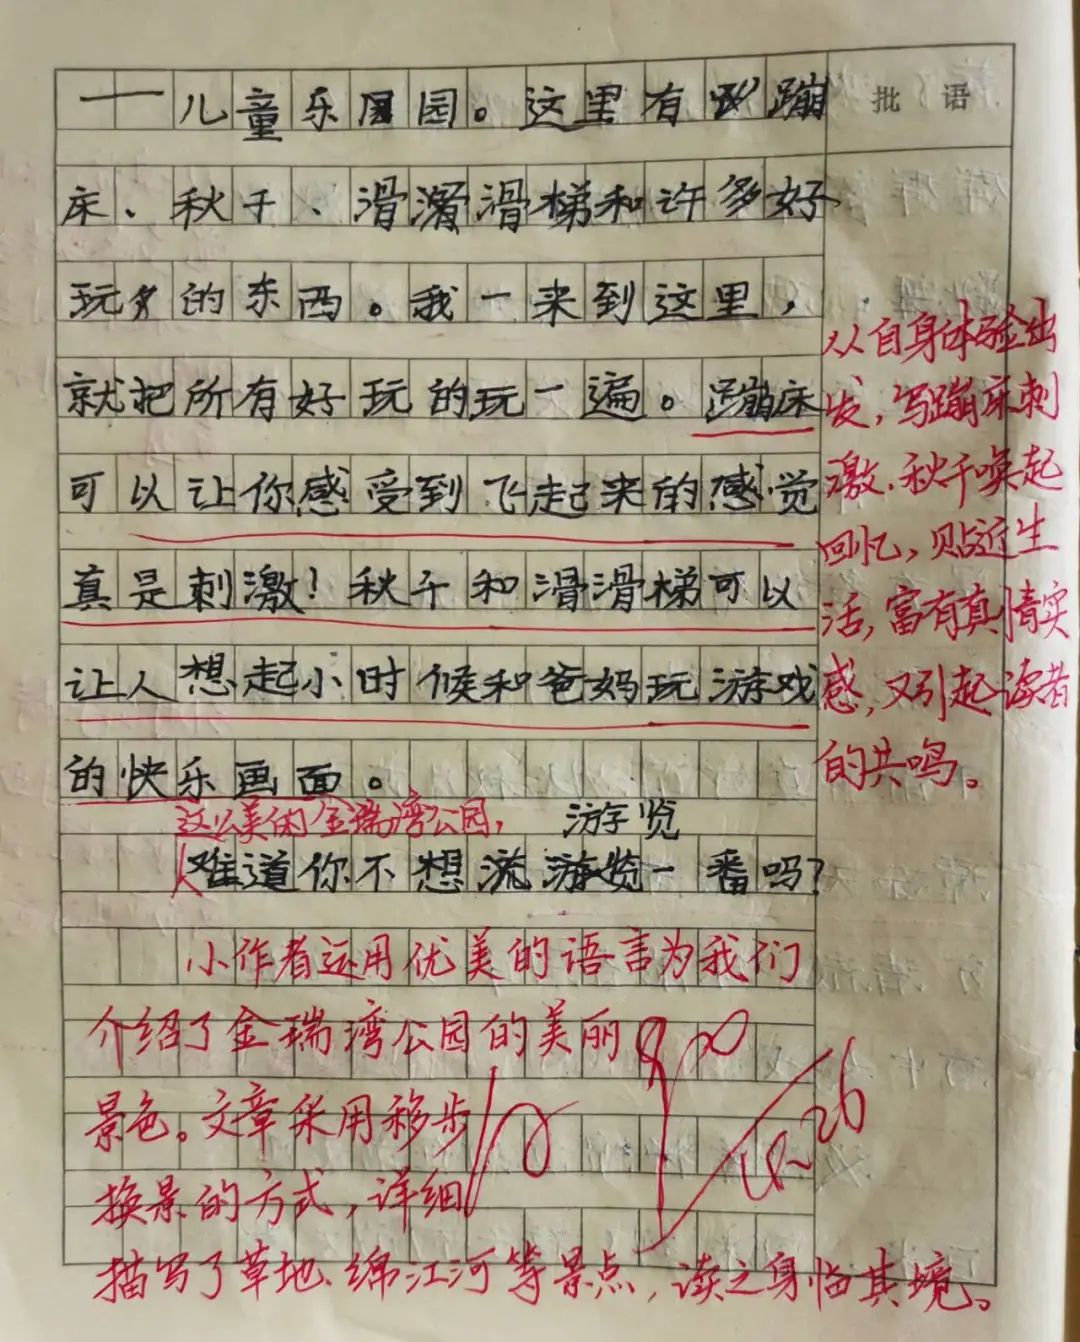 ——儿童乐园。这里有蹦
批语
床、秋千、滑滑梯和许多好
玩的东西。我一来到这里，
就把所有好玩的玩一遍。蹦床
可以让你感受到飞起来的感觉
真是刺激！秋千和滑滑梯可以
让人想起小时候和爸妈玩游戏
的快乐画面。
从自身体验出
发，写蹦床刺
激、秋千唤起
回忆，贴近生
活，富有真情实
感，又引起读者
的共鸣。
这么美的金瑞湾公园，
游览
难道你不想游览一番吗？
小作者运用优美的语言为我们
介绍了金瑞湾公园的美丽
景色。文章采用移步
换景的方式，详细
描写了草地、绵江河等景点，读之身临其境。